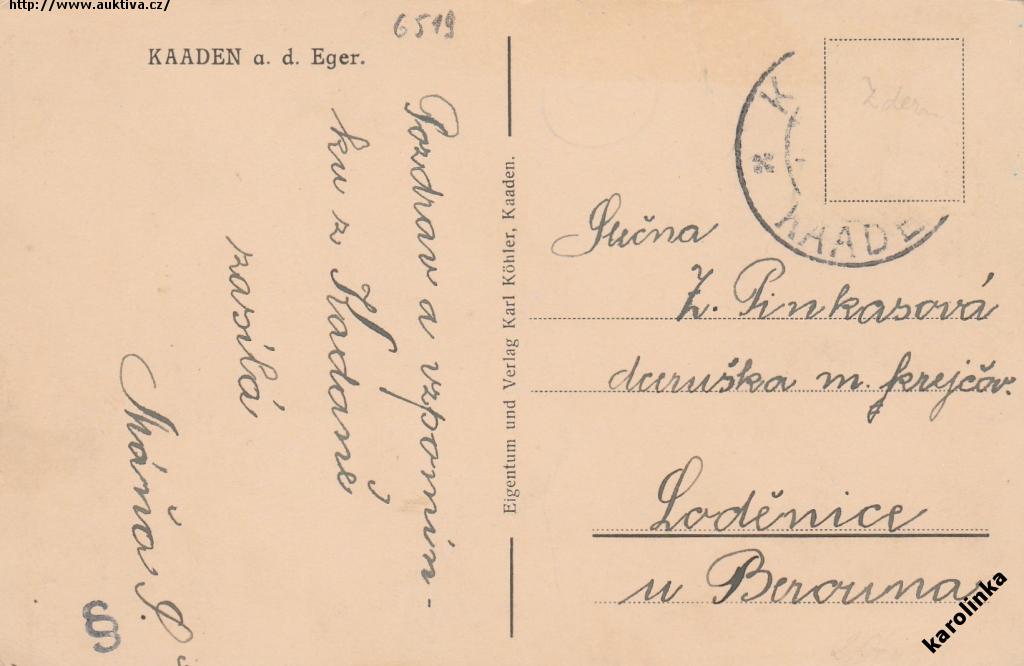 http://www.auktiva.cz/
6519
KAADEN a. d. Eger.
Pozdrav a vzpomín-
ku z Kadaně
zasílá
Máňa P.
Eigentum und Verlag Karl Köhler, Kaaden.
K
KAADE
Zdena
Slečna
Z. Pinkasová
daruška m. krejčov.
Loděnice
u Berouna
karolinka